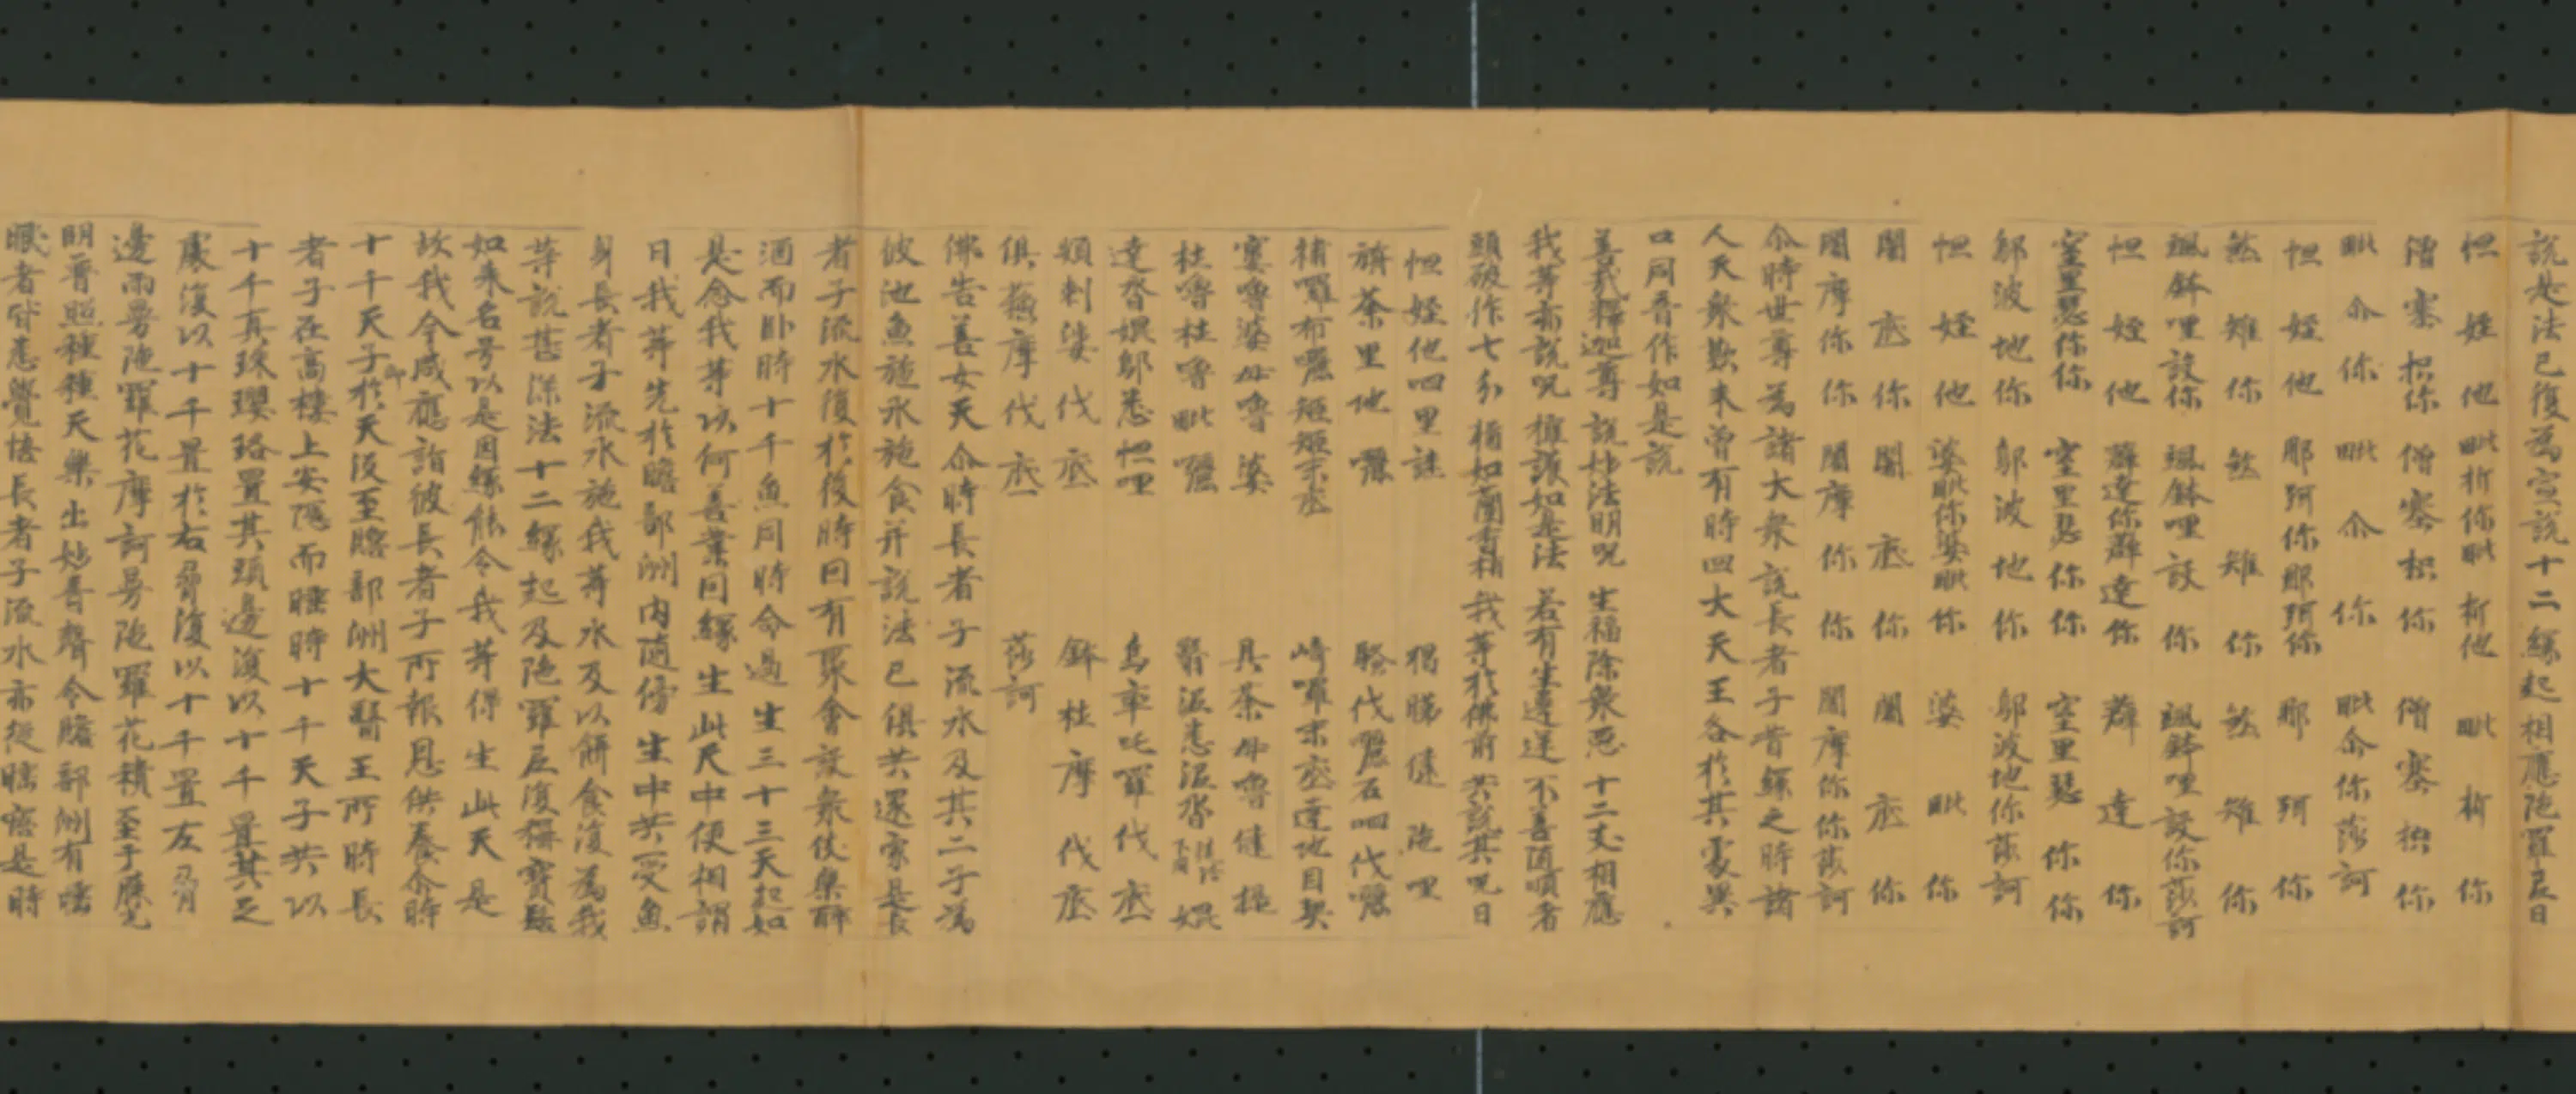 說是法已復為宣說十二緣起相應陁羅尼曰
怛姪他毗折你毗折他毗折你
僧塞枳你僧塞枳你僧塞枳你
毗尒你毗尒你毗尒你莎訶
怛姪他那珂你那珂你那珂你
煞雉你煞雉你煞雉你
颯鉢哩設你颯鉢哩設你颯鉢哩設你莎訶
怛姪他薜達你薜達你薜達你
窒里瑟你你窒里瑟你你窒里瑟你你
鄔波地你鄔波地你鄔波地你莎訶
怛姪他婆毗你婆毗你婆毗你
闍底你闍底你闍底你
闍摩你你闍摩你你闍摩你你莎訶
尒時世尊為諸大衆說長者子昔緣之時諸
人天衆歎未曾有時四大天王各於其處異
口同音作如是說
善哉釋迦尊 說妙法明呪 生福除衆惡 十二支相應
我等亦說呪 擁護如是法 若有生違逆 不善隨順者
頭破作七分 猶如蘭香梢 我等於佛前 共說其呪曰
怛姪他呬里謎 揭睇健陁哩
旃荼里地㘑 騷伐㘑石呬伐㘑
補囉布㘑矩矩末底 崎囉末底達地目契
窶嚕婆母嚕婆 具荼母嚕健提
杜嚕杜嚕毗㘑 翳泥悉泥沓下同 媲
達沓媲鄔悉怛哩 烏率吒囉伐底
頞剌娑伐底 鉢杜摩伐底
俱蘓摩伐底 莎訶
佛告善女天尒時長者子流水及其二子為
彼池魚施水施食并說法已俱共還家是長
者子流水復於後時因有聚會設衆伎樂醉
酒而卧時十千魚同時命過生三十三天起如
是念我等以何善業因緣生此天中便相謂
曰我等先於贍部洲內墮傍生中共受魚
身長者子流水施我等水及以餅食復為我
等說甚深法十二緣起及陁羅尼復稱寶髻
如來名号以是因緣能令我等得生此天是
故我今咸應詣彼長者子所報恩供養尒時
十千天子即於天沒至贍部洲大醫王所時長
者子在高樓上安隱而睡時十千天子共以
十千真珠瓔珞置其頭邊復以十千置其足
處復以十千置於右脅復以十千置左脅
邊雨曼陁羅花摩訶曼陁羅花積至于膝光
明普照種種天樂出妙音聲令贍部洲有睡
眠者皆悉覺悟長者子流水亦從睡寤是時